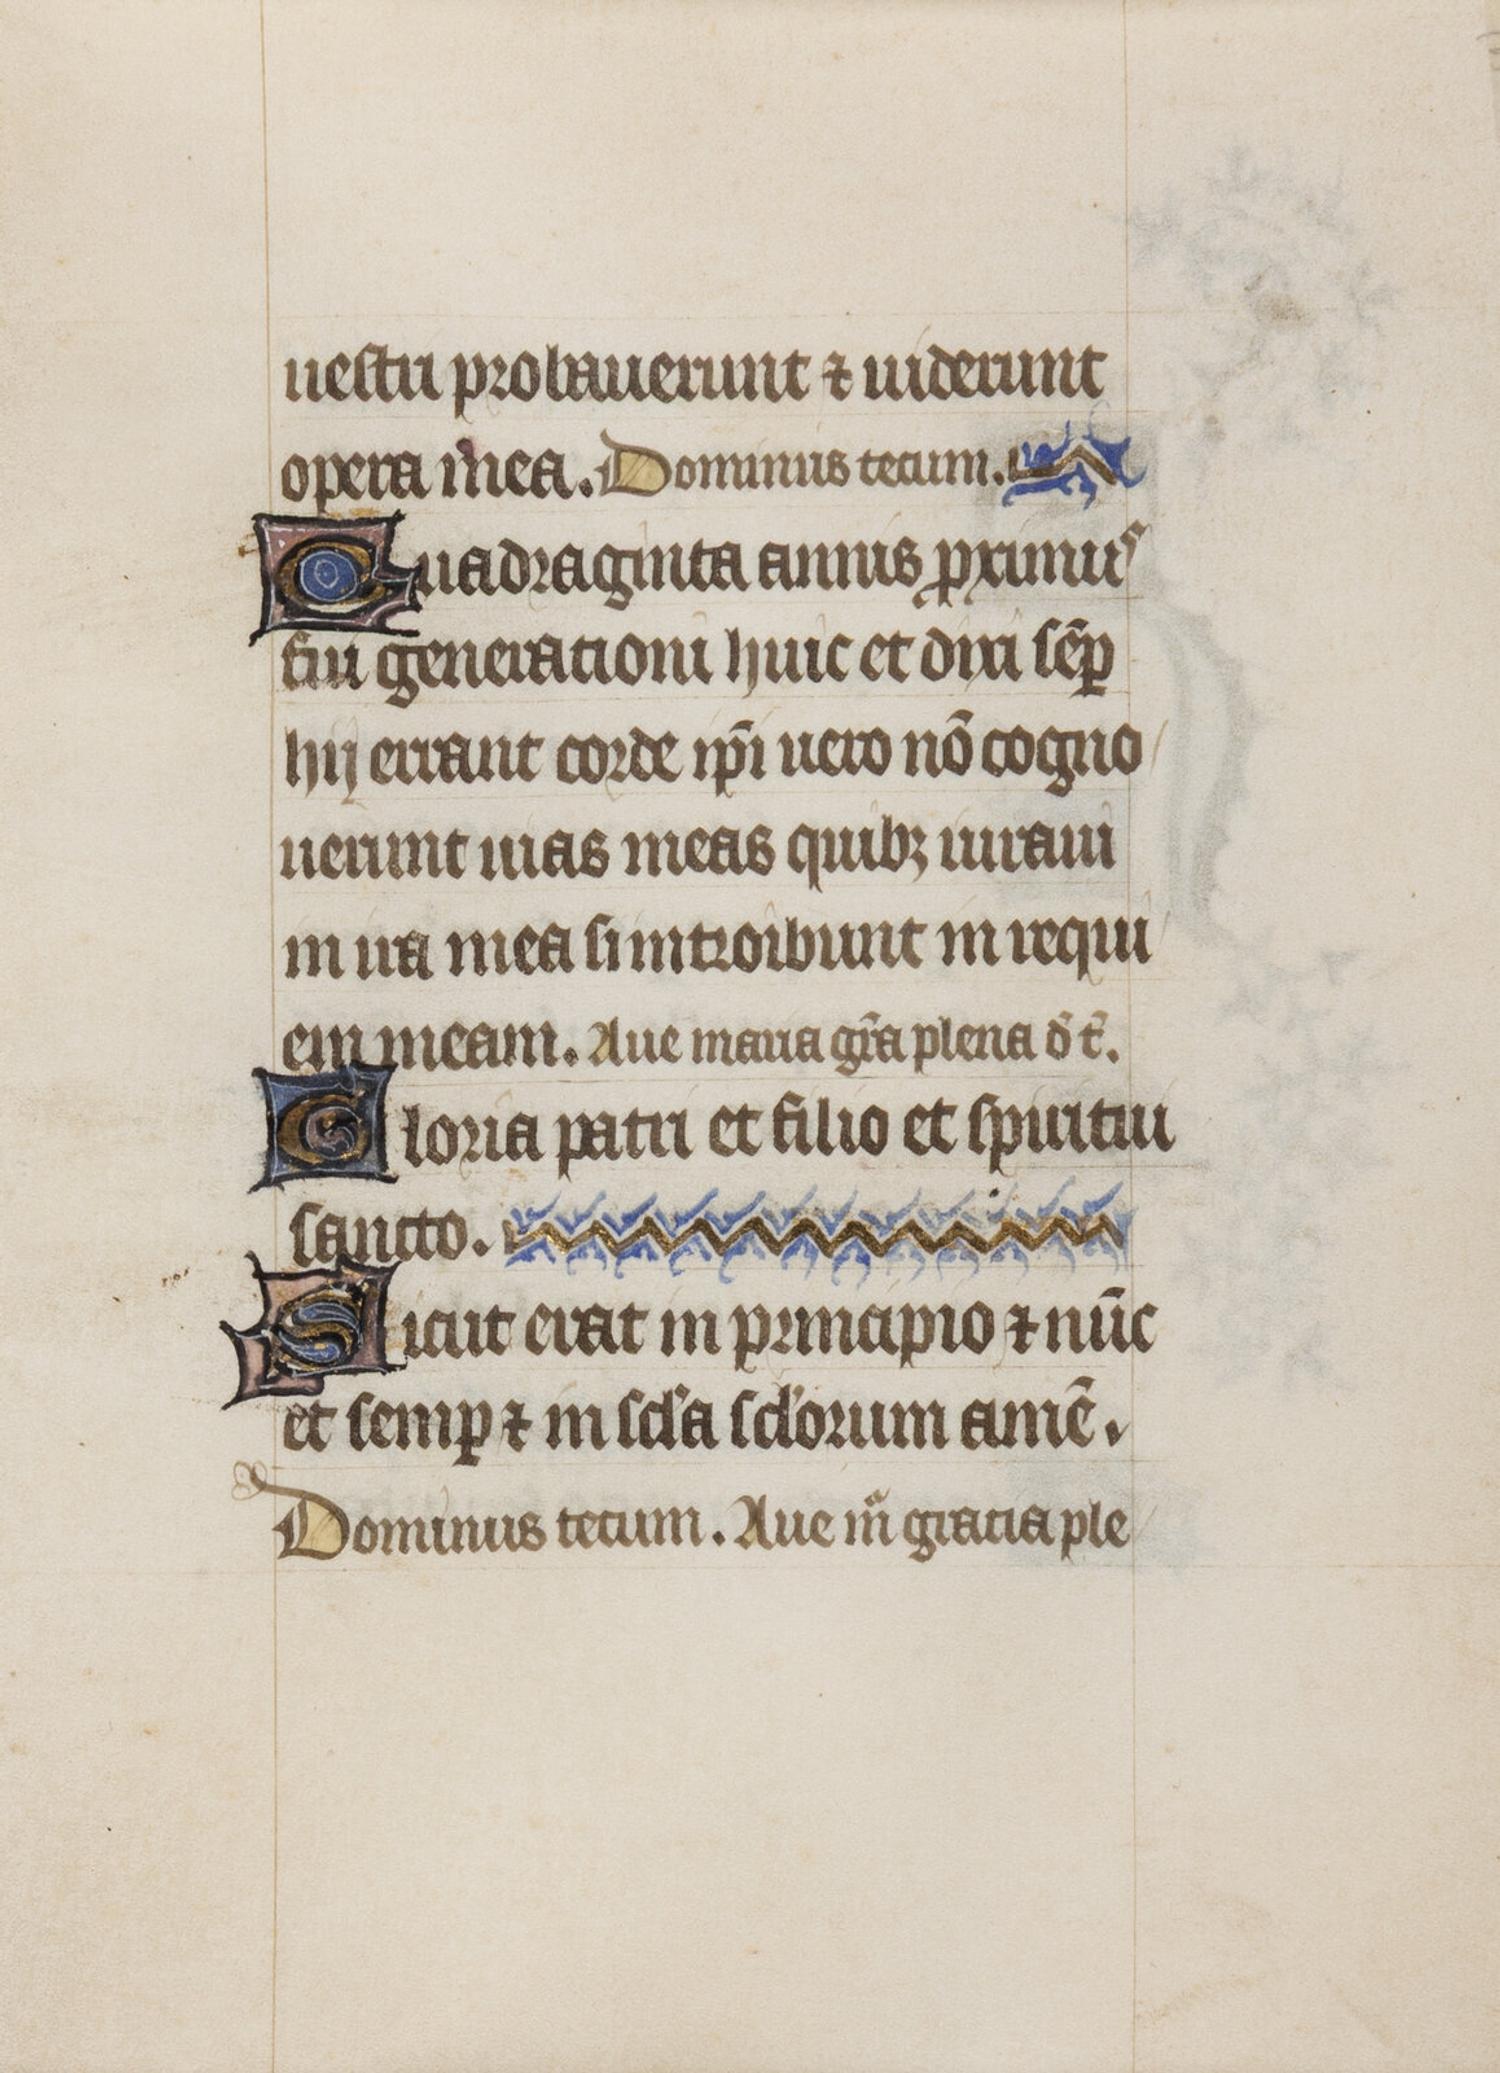 uestri probauerunt ⁊ uiderunt
opera mea. Dominus tecum.
Quadraginta annis ꝓximus
fui generationi huic et dixi sēꝑ
hij errant corde ip̄i uero nō cogno
uerunt uias meas quibꝫ iuraui
in ira mea si introibunt in requi
em meam. Aue maria gr̄a plena d̄ t̄.
Gloria patri et filio et spiritui
sancto.
Sicut erat in principio ⁊ nūc
et semꝑ ⁊ in scl'a scl'orum amē.
Dominus tecum. Aue mͣ gratia ple